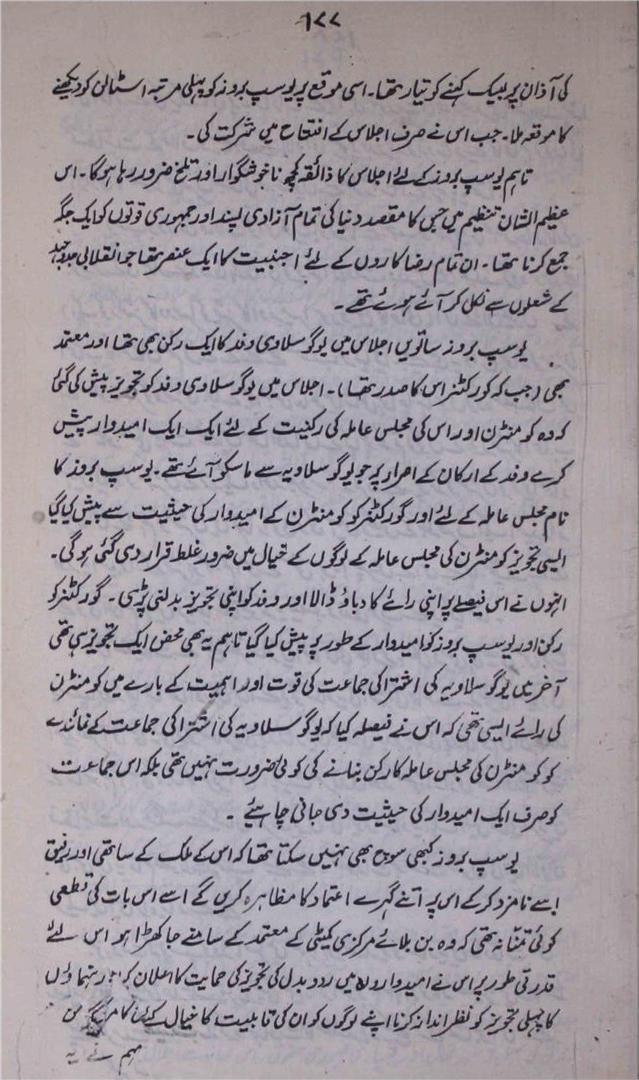 ۱۸۸
کی آذان پر لبیک کہنے کو تیار تھا۔ اسی موقع پر یوسپ بروز کو پہلی مرتبہ اسٹالن کو دیکھنے
کا موقعہ ملا۔ جب اس نے صرف اجلاس کے افتتاح میں شرکت کی۔
تاہم یوسپ بروز کے لئے اجلاس کا ذائقہ کچھ ناخوشگوار اور تلخ ضرور رہا ہوگا۔ اس
عظیم الشان تنظیم میں جس کا مقصد دنیا کی تمام آزادی پسند اور جمہوری قوتوں کو ایک جگہ
جمع کرنا تھا۔ ان تمام رضا کاروں کے لئے اجنبیت کا ایک عنصر تھا جو انقلابی جدوجہد
کے شعلوں سے نکل کر آئے ہوئے تھے۔
یوسپ بروز ساتویں اجلاس میں یوگوسلاوی وفد کا ایک رکن بھی تھا اور معتمد
بھی (جب کہ گورکٹنر اس کا صدر تھا)۔ اجلاس میں یوگوسلاوی وفد کو تجویز پیش کی گئی
کہ وہ کومنٹرن اور اس کی مجلس عاملہ کی رکنیت کے لئے ایک ایک امیدوار پیش
کرے وفد کے ارکان کے اصرار پر جو یوگوسلاویہ سے ماسکو آئے تھے۔ یوسپ بروز کا
نام مجلس عاملہ کے لئے اور گورکٹنر کو کومنٹرن کے امیدوار کی حیثیت سے پیش کیا گیا
ایسی تجویز کو منٹرن کی مجلس عاملہ کے لوگوں کے خیال میں ضرور غلط قرار دی گئی ہو گی۔
انہوں نے اس فیصلے پر اپنی رائے کا دباؤ ڈالا اور وفد کو اپنی تجویز بدلنی پڑی۔ گورکٹنر کو
رکن اور یوسپ بروز کو امیدوار کے طور پر پیش کیا گیا تاہم یہ بھی محض ایک تجویز ہی تھی
آخر میں یوگوسلاویہ کی اشتراکی جماعت کی قوت اور اہمیت کے بارے میں کومنٹرن
کی رائے ایسی تھی کہ اس نے فیصلہ کیا کہ یوگوسلاویہ کی اشتراکی جماعت کے نمائندے
کو کومنٹرن کی مجلس عاملہ کا رکن بنانے کی کوئی ضرورت نہیں تھی بلکہ اس جماعت
کو صرف ایک امیدوار کی حیثیت دی جانی چاہیئے۔
یوسپ بروز کبھی سوچ بھی نہیں سکتا تھا کہ اس کے ملک کے ساتھی اور رفیق
اسے نامزد کر کے اس پر اتنے گہرے اعتماد کا مظاہرہ کریں گے اسے اس بات کی قطعی
کوئی تمنا نہ تھی کہ وہ بن بلائے مرکزی کمیٹی کے معتمد کے سامنے جا کھڑا ہو اس لئے
قدرتی طور پر اس نے امیدواروں میں ردو بدل کی تجویز کی حمایت کا اعلان کیا رہنماؤں
کا پہلی تجویز کو نظر انداز کرنا اپنے لوگوں کو ان کی قابلیت کا خیال کئے
مہم نے یہ